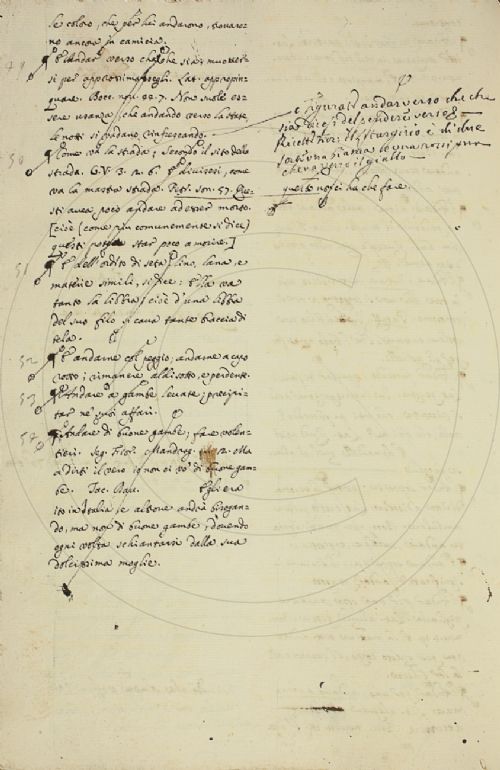 le coloro, che per lei andarono, trovaro-
no ancora in camicia.
49 Andar verso chechè sia: muover-
si per approssimarsegli. Lat. appropin-
quare. Bocc. nov. Non suole es-
sere usanza, che andando verso la state,
le notti si vadano rinfrescando.
50 Come va la strada; secondo il sito della
strada. G.V. 3. 2. 6. E diviresi, come
va la mastra strada. Petr. son. 57. Que-
sti avea poco andare ad esser morto.
[cioè (come più comunemente si dice)
questi star poco a morire.]
51 E dell'ordito di seta, lino, lana, e
materie simili, si dice: Ella va
tanto la libbra; cioè d'una libbra
del suo filo si cava tante braccia di
tela.
52 E andarne col peggio; andarne a capo
rotto; rimanere al disotto, e perdente.
53 Andare a gambe levate; precipi-
tar ne' suoi affari.
54 Andare di buone gambe; fare volen-
tieri. Seg. Fior. Mandrag. 2. Ma
a dirti il vero io non ci vo di buone gam-
be. Egli era
ito in Italia, e altrove andrà bisognan-
do, ma non di buone gambe, dovendo
ogni volta schiantarsi dalla sua
dolcissima moglie.
e figurat. andar verso che che
sia dicesi del
Ricett. Fior. Il è di due
sorti, una bianca rossa, pur
che vada verso il giallo
questo non ci ha che fare.